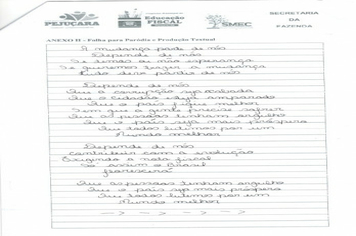 PEJUÇARA
Educação
FISCAL
SMEC
SECRETARIA
DA
FAZENDA
ANEXO II - Folha para Paródia e Produção Textual
A mudança parte de nós
Depende de nós
Se temos ou não esperança
Se queremos trazer a mudança
Tudo deve partir de nós
Depende de nós
Que a corrupção seja
Que o cidadão seja
Que o país fique melhor
Sem que a gente precise sofrer
Que as pessoas tenham orgulho
Que o país seja mais próspero
Que todos lutemos por um
Mundo melhor
Depende de nós
contribuir com a
Exigindo a nota fiscal
Só assim o Brasil
Que as pessoas tenham orgulho
Que o país seja mais próspero
Que todos lutemos por um
Mundo melhor